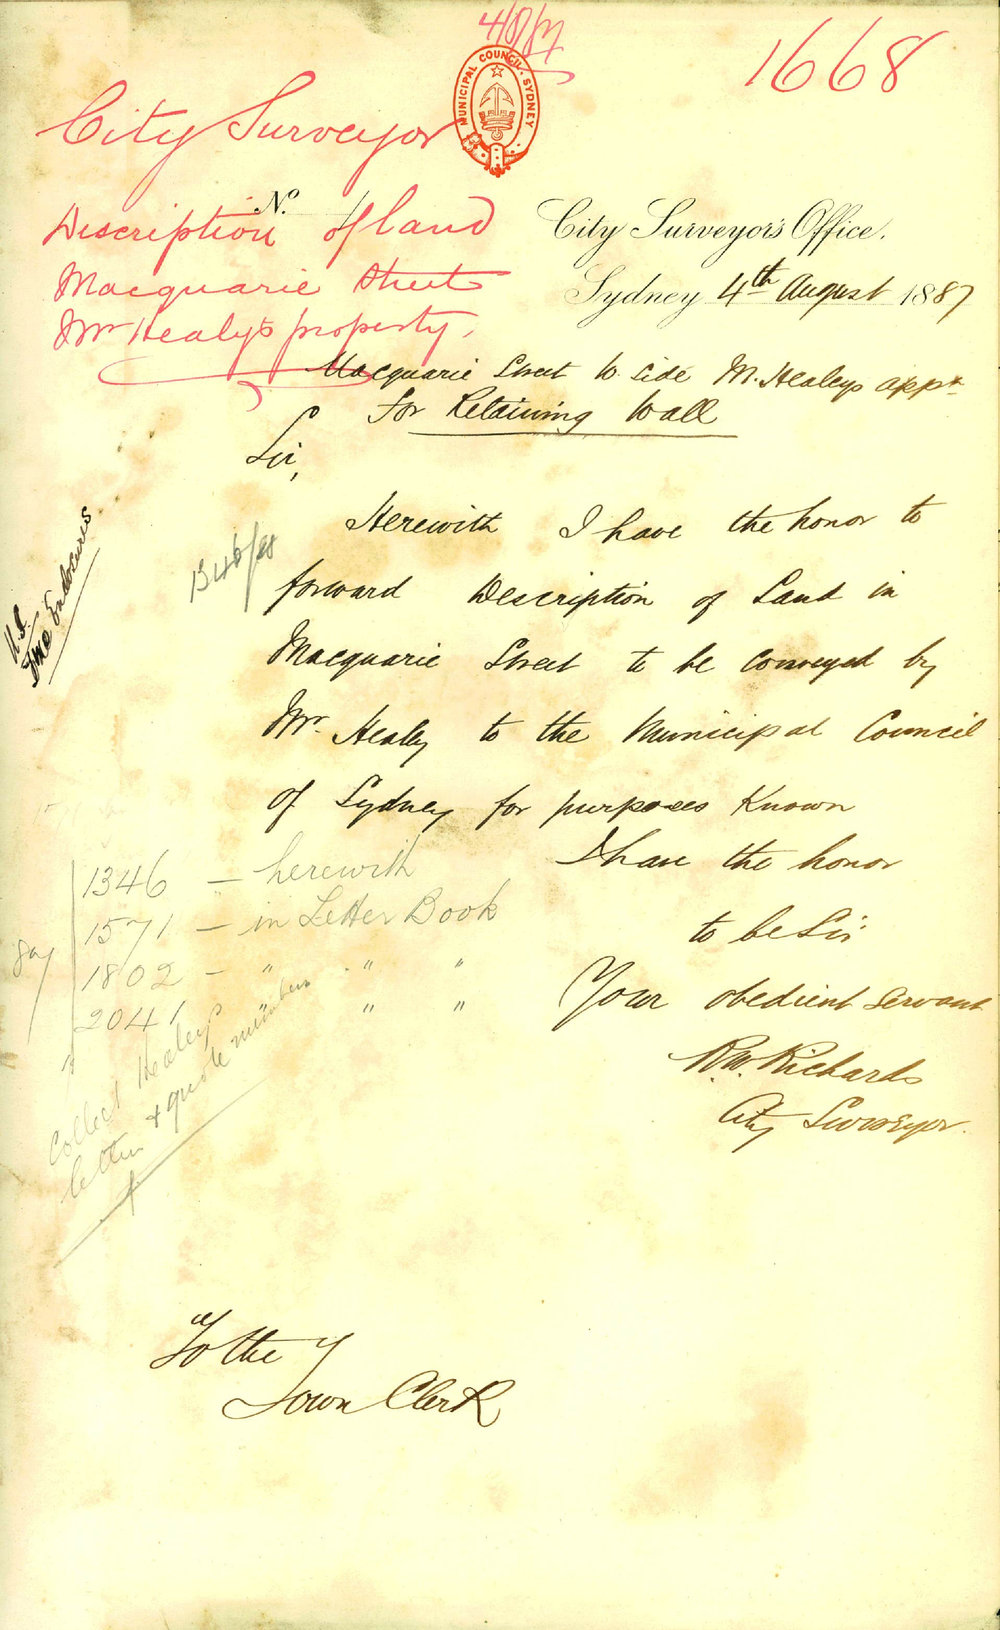 4/8/87
1668
MUNICIPAL COUNCIL. SYDNEY
City Surveyor
No.
Description of land
Macquarie Street
Mr Healy's property.
City Surveyor's Office.
Sydney 4th August 1887
Macquarie Street W. side M. Healeys appn
for Retaining Wall
Sir,
Herewith I have the honor to
forward Description of Land in
Macquarie Street to be conveyed by
Mr. Healey to the Municipal Council
of Sydney for purposes known
I have the honor
to be Sir
Your obedient servant
R.W. Richards
City Surveyor.
Enclosures
1346 — herewith
1571 — in Letter Book
1802 — " " "
2041 " " "
Collect Healeys
letter & quote numbers
To the
Town Clerk